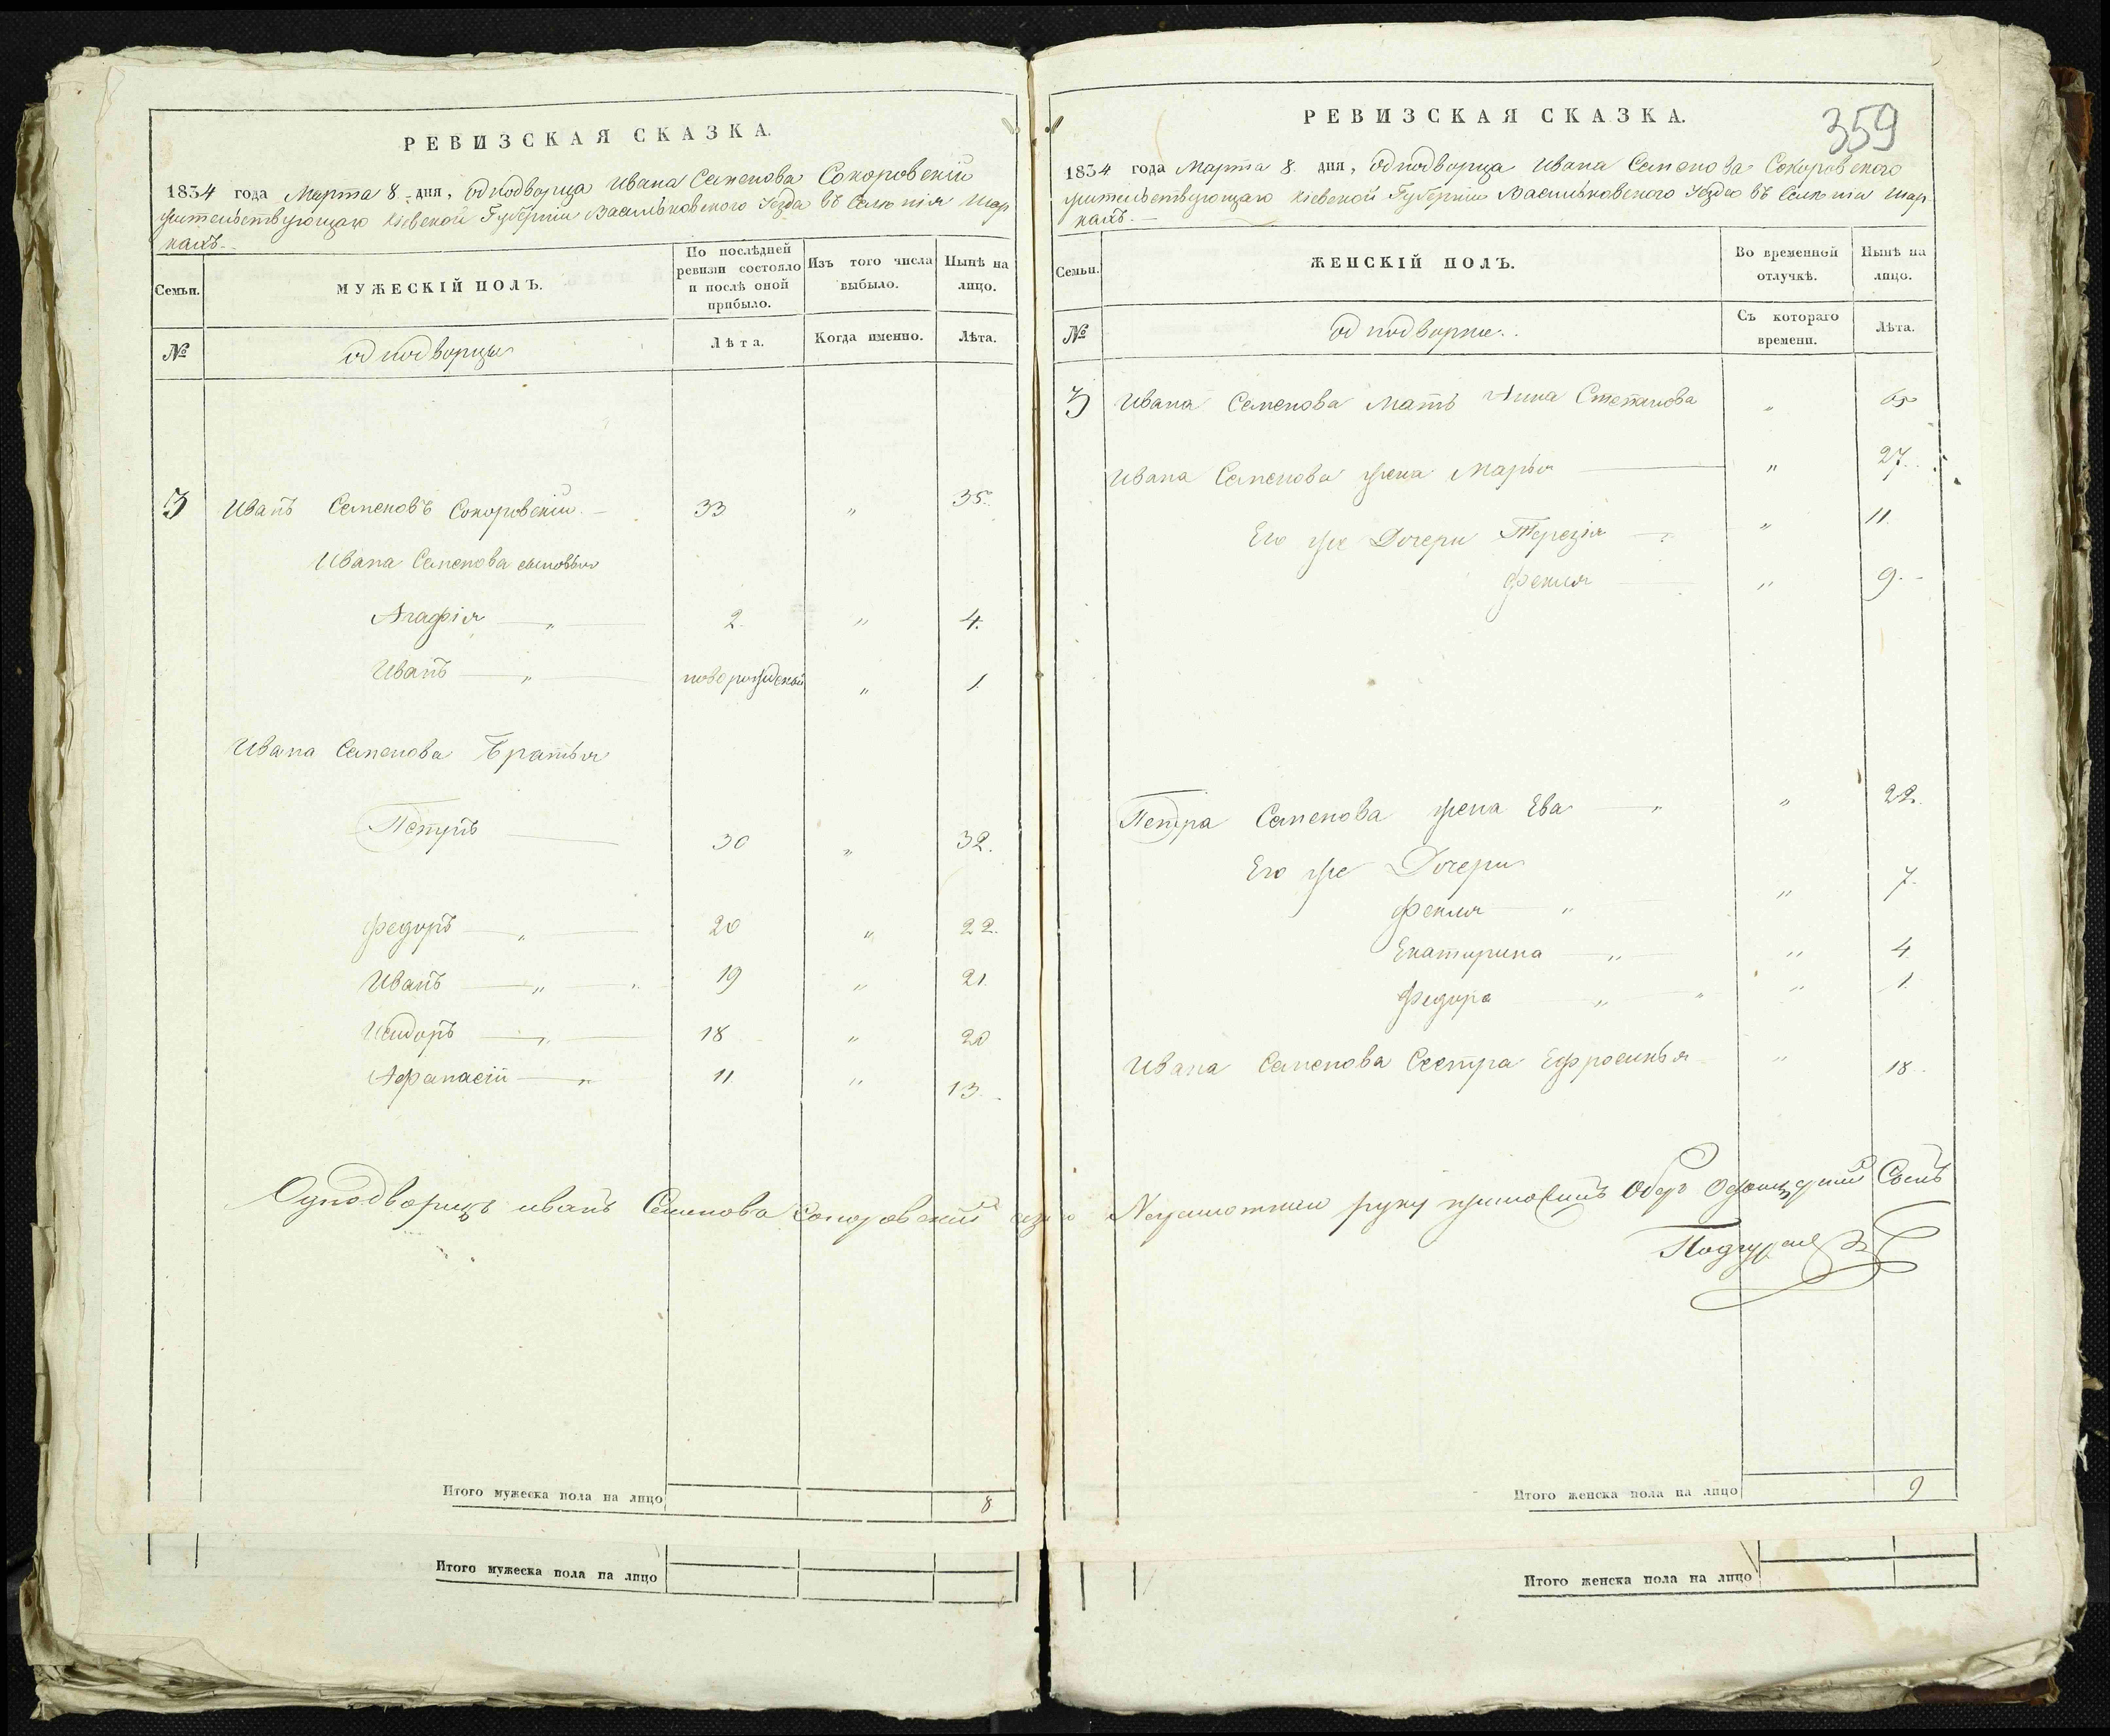 РЕВИЗСКАЯ СКАЗКА.
1834 года Марта 8 дня, однодворца Ивана Семенова Сокоровскій
жительствующаго Кіевской Губерніи Васильковскаго Уезда въ Селенія Шар
кахъ.
Семьи.
МУЖЕСКІЙ ПОЛЪ.
По послѣдней ревизіи состояло и послѣ оной прибыло.
Изъ того числа выбыло.
Нынѣ на лицо.
№
однодворцы
Лѣта.
Когда именно.
Лѣта.
3 Иванъ Семеновъ Сокоровскій. 33 „ 35.
Ивана Семенова сыновья
Агафія „ 2. „ 4.
Иванъ „ новорожденый „ 1.
Ивана Семенова Братья
Петръ 30 „ 32.
Федоръ „ 20 „ 22.
Иванъ „ 19 „ 21.
Исидоръ „ 18 „ 20
Афанасій „ 11 „ 13.
Однодворецъ иванъ Семенова Сокоровский
Итого мужеска пола на лицо 8
Итого мужеска пола на лицо
359
РЕВИЗСКАЯ СКАЗКА.
1834 года Марта 8. дня, Однодворца Ивана Семенова Сокоровского
жительствующаго Кіевской Губерніи Васильковского Уезда въ Селеніи Шар
кахъ.
Семьи.
ЖЕНСКІЙ ПОЛЪ.
Во временной отлучкѣ.
Нынѣ на лицо.
№
однодворки.
Съ котораго времени.
Лѣта.
3 Ивана Семенова Мать Анна Степанова „ 65
Ивана Семенова жена Марья „ 27.
Его же Дочери Терезія „ 11.
Фекля „ 9.
Петра Семенова жена Ева „ 22.
Его же Дочери
Фекля „ 7.
Екатирина „ 4.
Федора „ 1.
Ивана Семенова Сестра Ефросинья „ 18.
Неграмотнии руку приложилъ
Итого женска пола на лицо 9
Итого женска пола на лицо